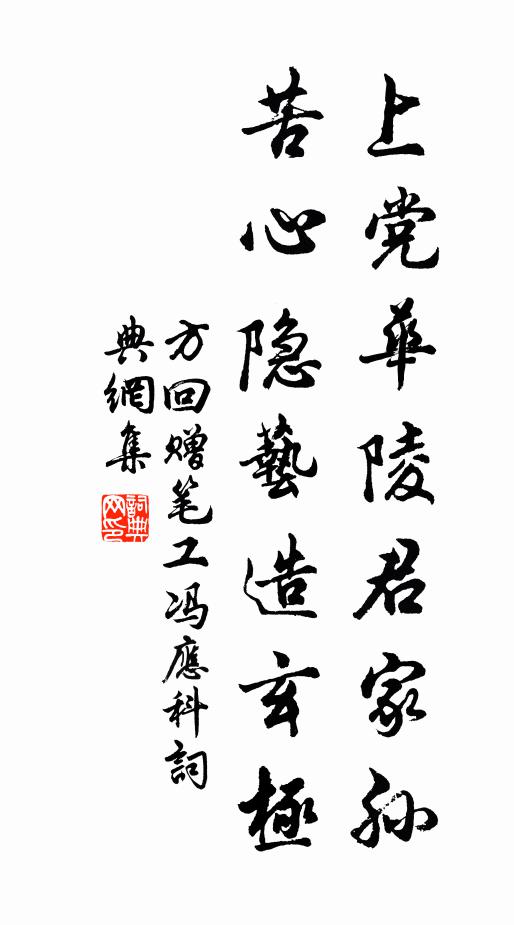 上党華陵君家孙
苦心隐藝造玄極
方回赠笔工冯應科詞
典網集
詞典
网印